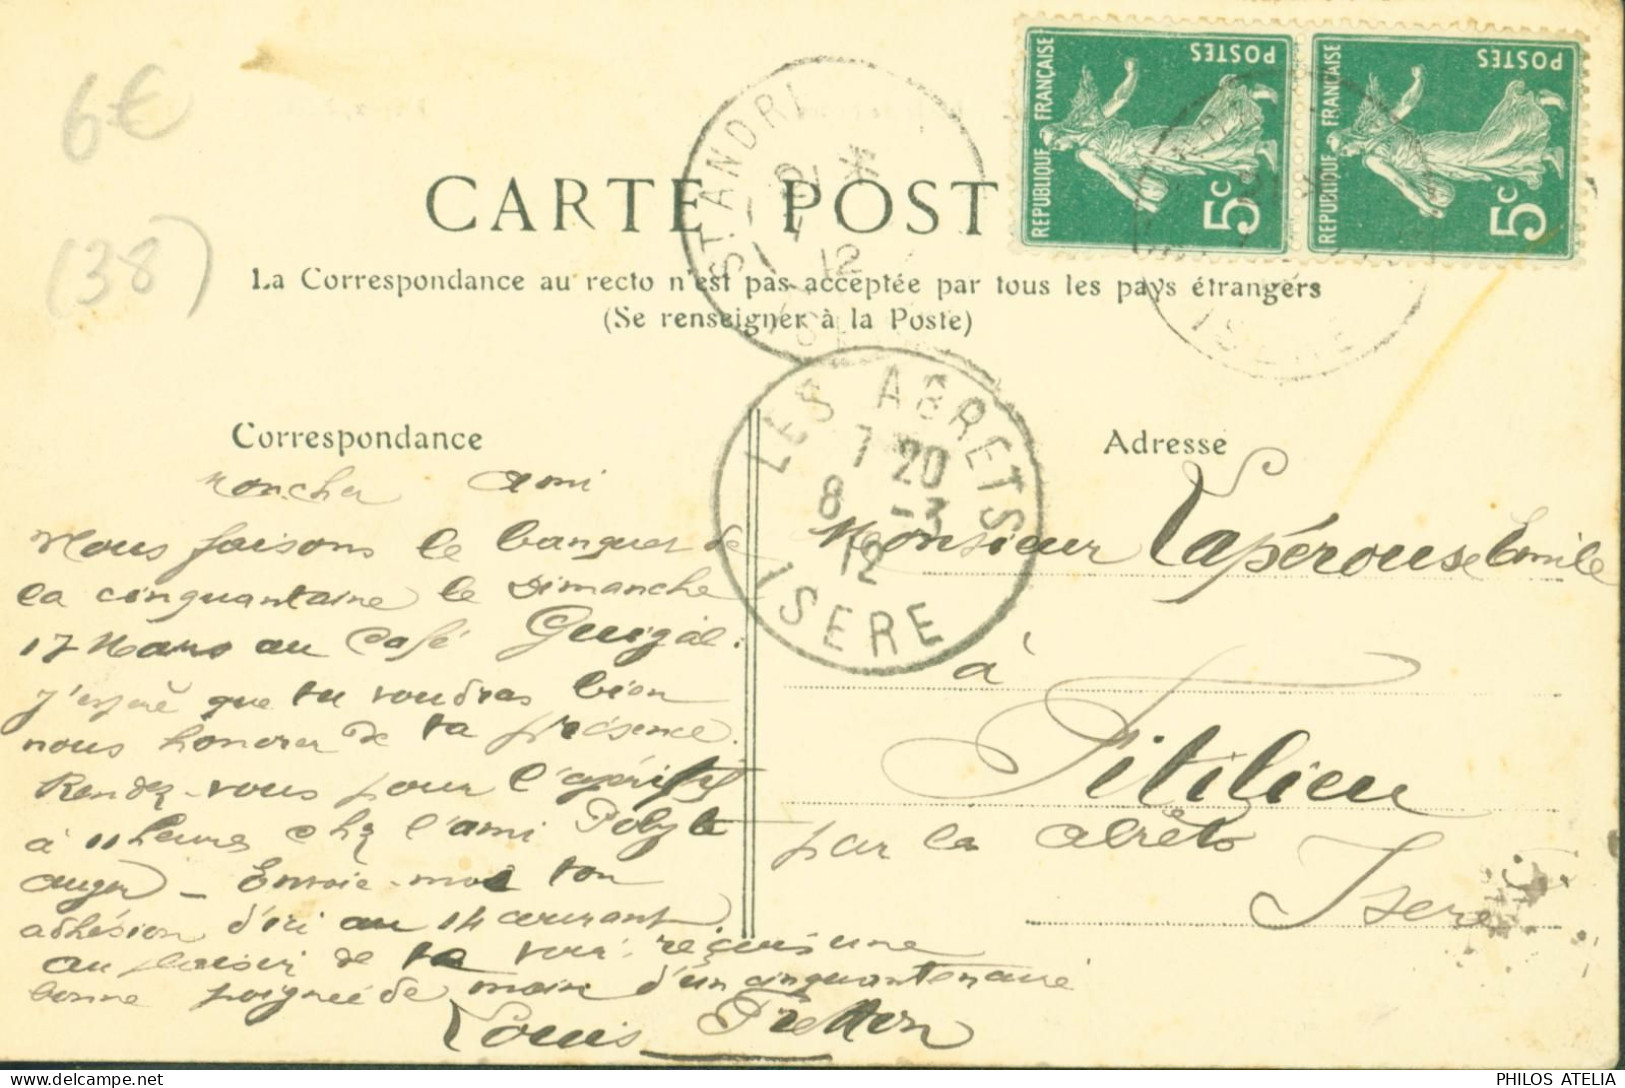 6€
(38)
CARTE POST
La Correspondance au recto n'est pas acceptée par tous les pays étrangers
(Se renseigner à la Poste)
POSTES
REPUBLIQUE FRANÇAISE
5c
POSTES
REPUBLIQUE FRANÇAISE
5c
ST ANDRE
12
ISERE
LES ABRETS
7 20
8 -3
12
ISERE
Correspondance
Mon cher ami
Nous faisons le banquet de
la cinquantaine le Dimanche
17 Mars au Café Guigal.
J'espère que tu voudras bien
nous honorer de ta présence.
Rendez-vous pour l'apéritif
à 11 heures chz l'ami Polyte
auger - Envoie-moi ton
adhésion d'ici au 14 courant.
au plaisir de te voir. reçois une
bonne poignée de main d'un cinquantenaire
Louis Fretton
Adresse
Monsieur Lapérouse Emile
à
Fitilieu
par les abrêts
Isere
PHILOS ATELIA